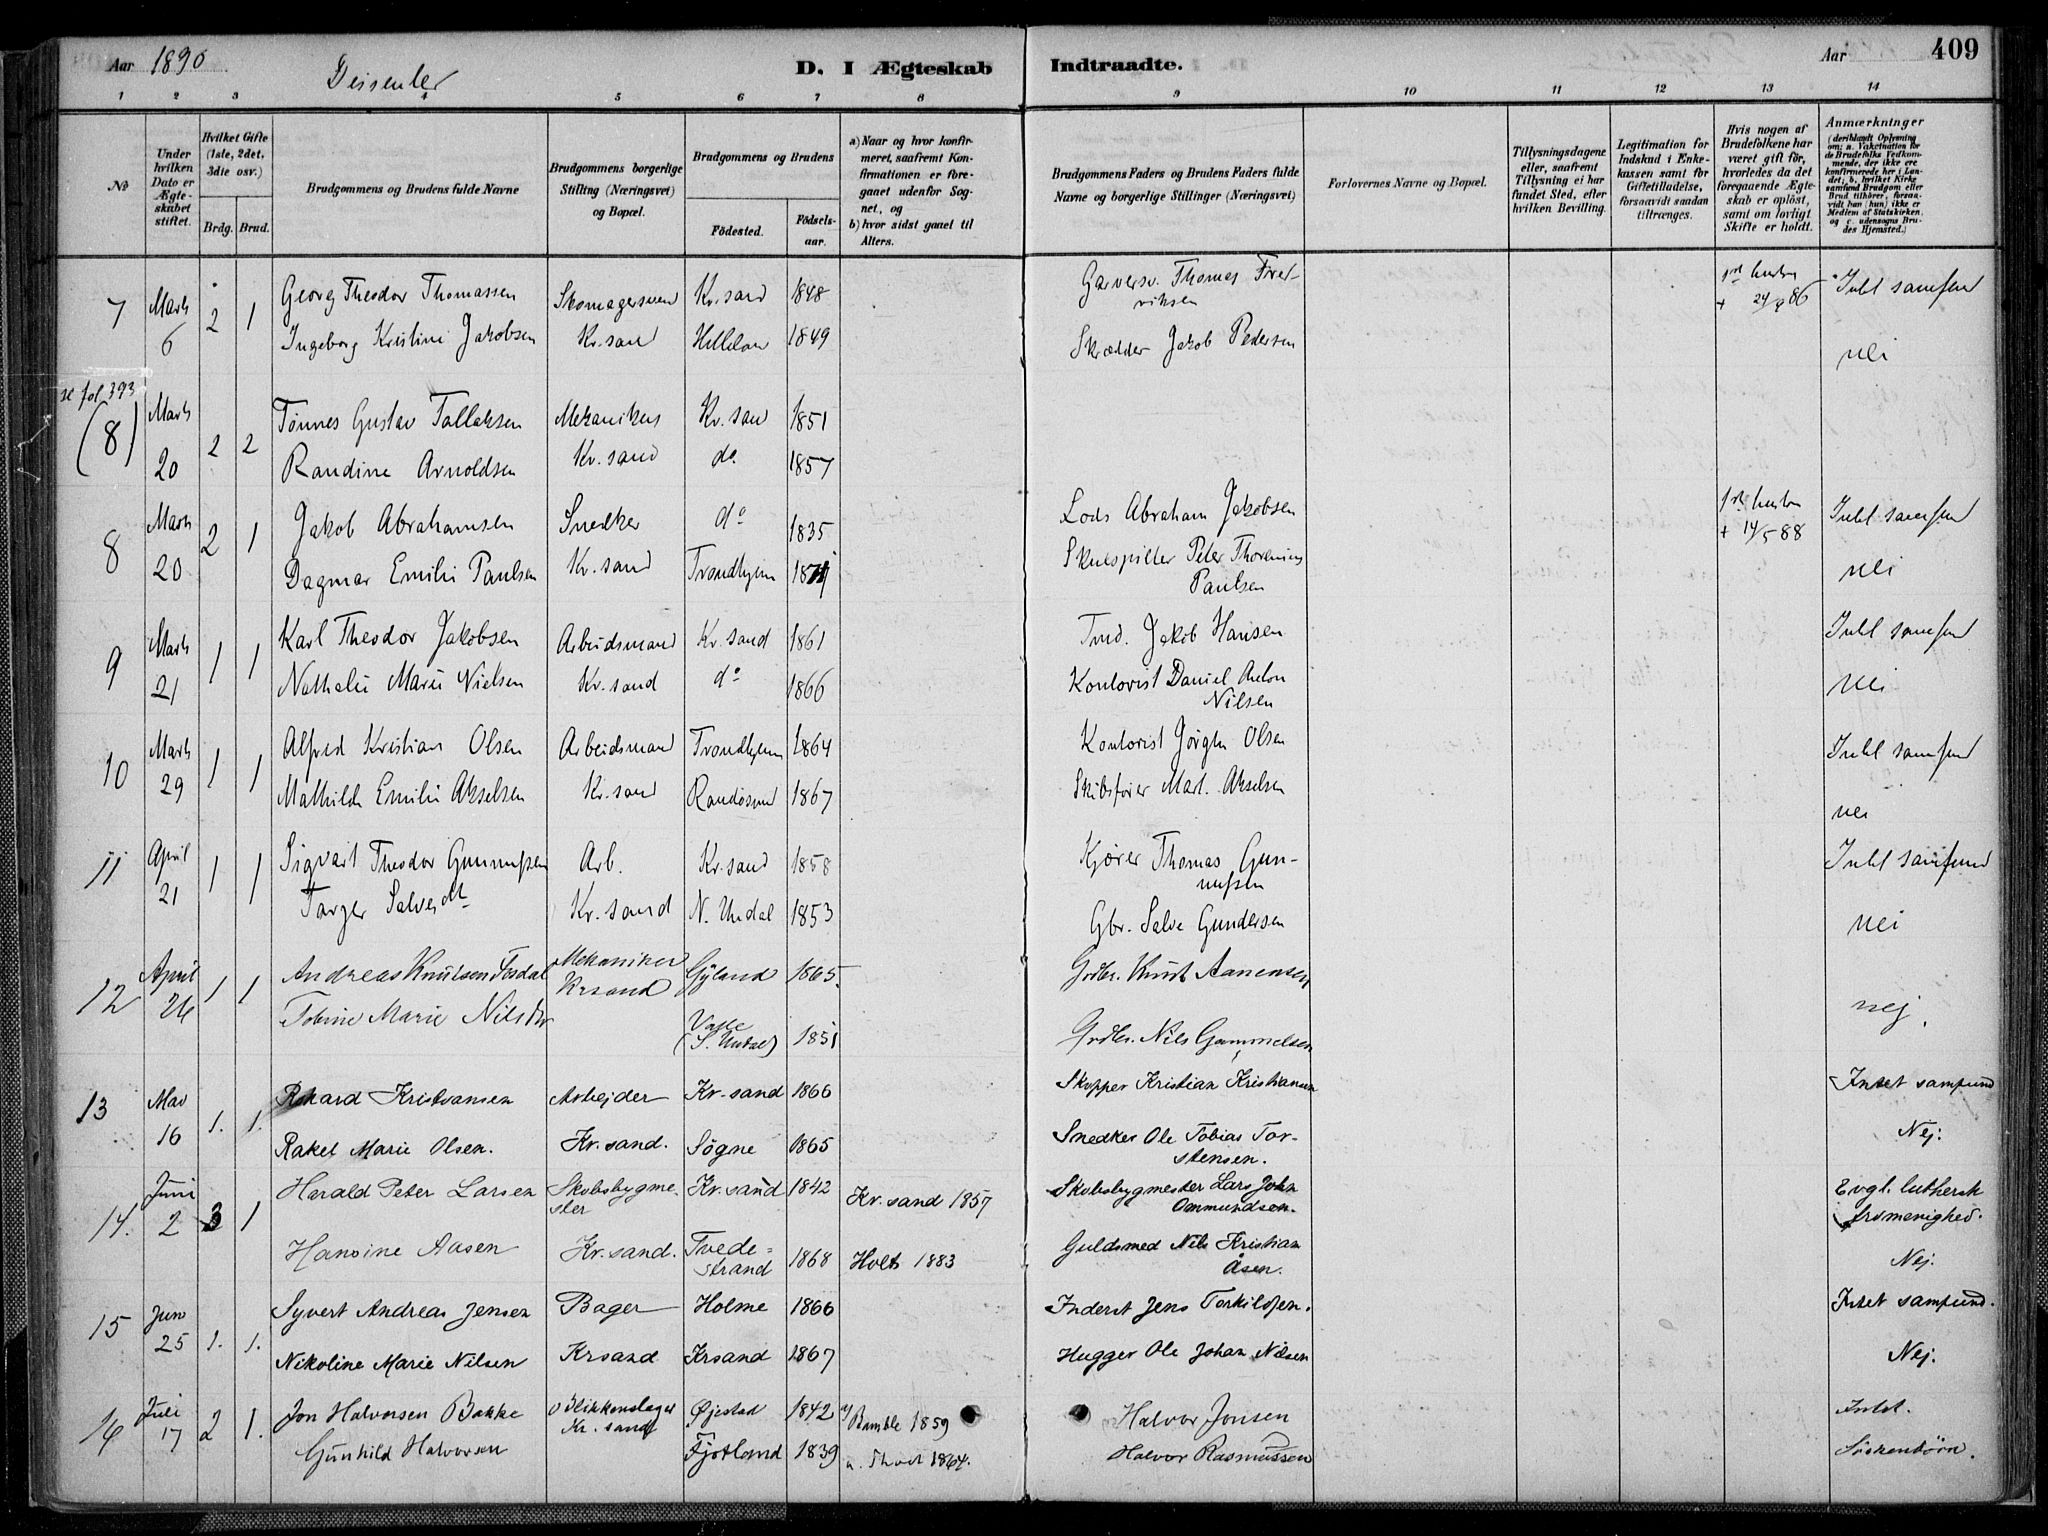 Aar 1890
Dissenter
D. I Ægteskab Indtraadte.
Aar 409
1 2 3 4 5 6 7 8 9 10 11 12 13 14
No
Under hvilken Dato er Ægteskabet stiftet.
Hvilket Gifte (1ste, 2det, 3die osv.)
Brdg. Brud.
Brudgommens og Brudens fulde Navne
Brudgommens borgerlige Stilling (Næringsvei) og Bopæl.
Brudgommens og Brudens
Födested.
Födselsaar.
a) Naar og hvor konfirmeret, saafremt Konfirmationen er foregaaet udenfor Sognet, og
b) hvor sidst gaaet til Alters.
Brudgommens Faders og Brudens Faders fulde Navne og borgerlige Stillinger (Næringsvei)
Forlovernes Navne og Bopæl.
Tillysningsdagene eller, saafremt Tillysning ei har fundet Sted, efter hvilken Bevilling.
Legitimation for Indskud i Enkekassen samt for Giftetilladelse, forsaavidt saadan tiltrænges.
Hvis nogen af Brudefolkene har været gift för, hvorledes da det foregaaende Ægteskab er oplöst, samt om lovligt Skifte er holdt.
Anmærkninger
(deriblandt Oplysning om: a. Vakcination för de Brudefolks Vedkommende, der ikke ere konfirmerede her i Landet; b. hvilket Kirkesamfund Brudgom eller Brud tilhörer, forsaavidt han (hun) ikke er Medlem af Statskirken, og c. udensogns Brudes Hjemsted.)
7 Marts 6 2 1 Georg Theodor Thomassen Skomagersvend Kr.sand 1848 Garversv. Thomas Fredriksen + 24/ 86 Intet samfund
Ingeborg Kristine Jakobsen Kr.sand 1849 Skrædder Jakob Pedersen nei
se fol 393
(8) Marts 20 2 2 Tønnes Gustav Tallaksen Mekanikus Kr.sand 1851
Randine Arnoldsen Kr.sand do. 1857
8 Marts 20 2 1 Jakob Abrahamsen Snedker do 1835 Lods Abraham Jakobsen + 14/5 88 Intet samfund
Dagmar Emilie Paulsen Kr.sand Trondhjem Skuespiller Peter Paulsen nei
9 Marts 21 1 1 Karl Theodor Jakobsen Arbeidsmand Kr.sand 1861 Jakob Hansen Intet samfund
Nathalie Marie Nielsen Kr.sand do 1866 Kontorist Daniel Anton Nilsen nei
10 Marts 29 1 1 Alfred Kristian Olsen Arbeidsmand Trondhjem 1864 Kontorist Jørgen Olsen Intet samfund
Mathilde Emilie Akselsen Kr.sand Randøsund 1867 Skibsfører Mart. Akselsen nei
11 April 21 1 1 Sigvart Theodor Gunnufsen Arb. Kr.sand 1858 Kjører Thomas Gunnufsen Intet samfund
Targer Salvesdt Kr.sand N. Undal 1853 Gbr. Salve Gundersen nei
12 April 26 1 1 Andreas Knutsen Fosdal Mekaniker Krsand Gyland 1865 Grdbr. Knut Aanensen
Tobine Marie Nilsdtr Valle (S. Undal) 1851 Grdbr. Nils Gammelsen nej.
13 Mai 16 1. 1. Rikard Kristiansen Arbejder Kr.sand 1866 Skipper Kristian Kristiansen Intet samfund
Rakel Marie Olsen. Kr.sand. Søgne 1865 Snedker Ole Tobias Torstensen. Nej.
14. Juni 2 3 1 Harald Peter Larsen Skibsbygmester Kr.sand 1842 Kr.sand 1857 Skibsbygmester Lars John Ommundsen. Evgl. luthersk frimenighed.
Hansine Aasen Kr.sand. Tvedestrand 1868 Holt 1883 Guldsmed Nils Kristian Åsen. Nej.
15 Juni 25 1. 1. Syvert Andreas Jensen Bager Holme 1866 Inderst Jens Torkildsen. Intet samfund.
Nikoline Marie Nilsen Krsand Krsand 1867 Hugger Ole Johan Nilsen Nej.
16 Juli 17 2 1. Jon Halvorsen Bakke Blikkenslager Kr.sand Øjestad 1842 a/ Bamble 1859 Halvor Jonsen Intet.
Gunhild Halvorsen Fjotland 1839 1864. Halvor Rasmussen Söskenbörn.